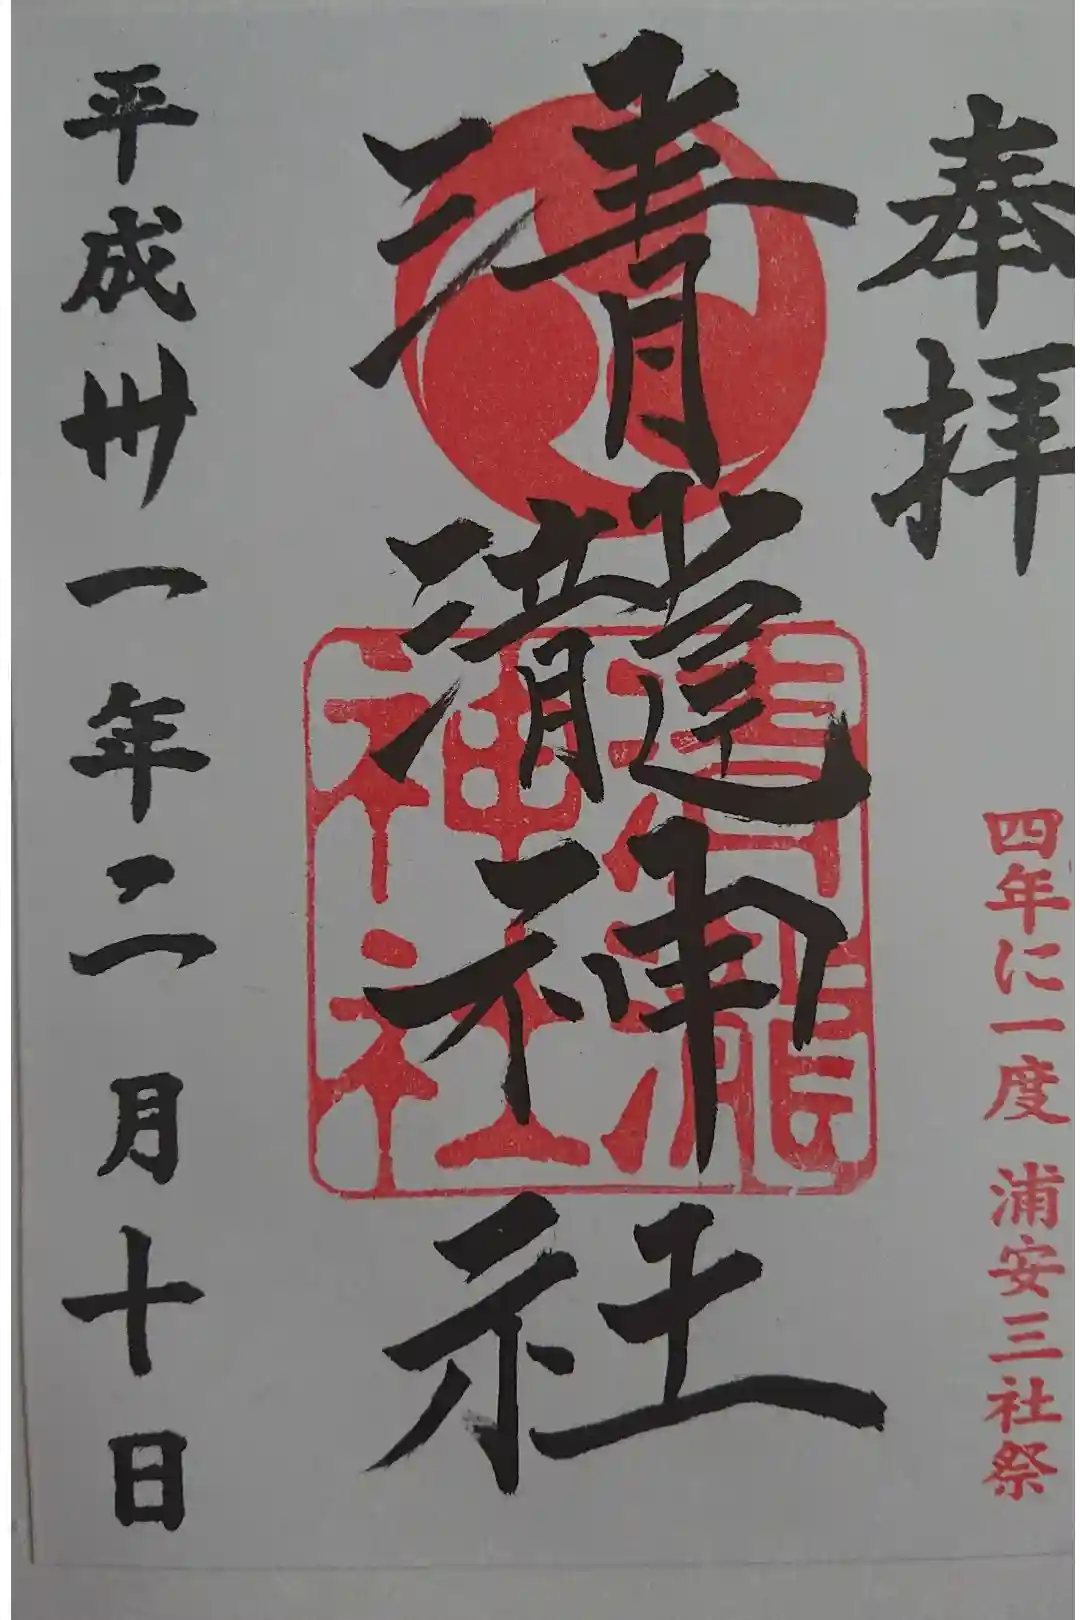 奉拝
四年に一度 浦安三社祭
清瀧神社
清瀧神社
平成卅一年二月十日